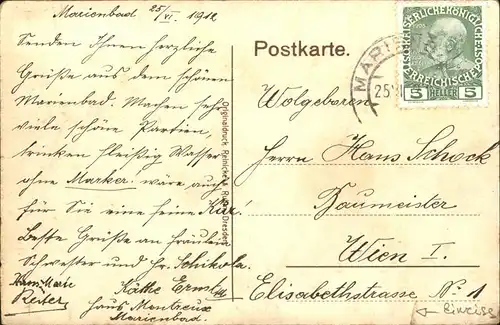 Marienbad 25/VI. 1912
Senden Ihnen herzliche
Grüße aus dem schönen
Marienbad. Machen sehr
viele schöne Partien,
trinken fleißig Wasser
ohne Marker! wäre auch
für Sie eine feine Kur!
Beste Grüße an Fräulein
Schwester und Hr. Schikola.
Käthe
Haus Montreux
Marienbad.
Reiter
Originaldruck Reinicke & Dresden
Postkarte.
MARIENBAD
25
KAISERLICHE KÖNIGLICHE
ÖSTERREICHISCHE POST
5 HELLER 5
Wolgeboren
Herrn Hans Schock
Baumeister
Wien I.
Elisabethstrasse Nr 1